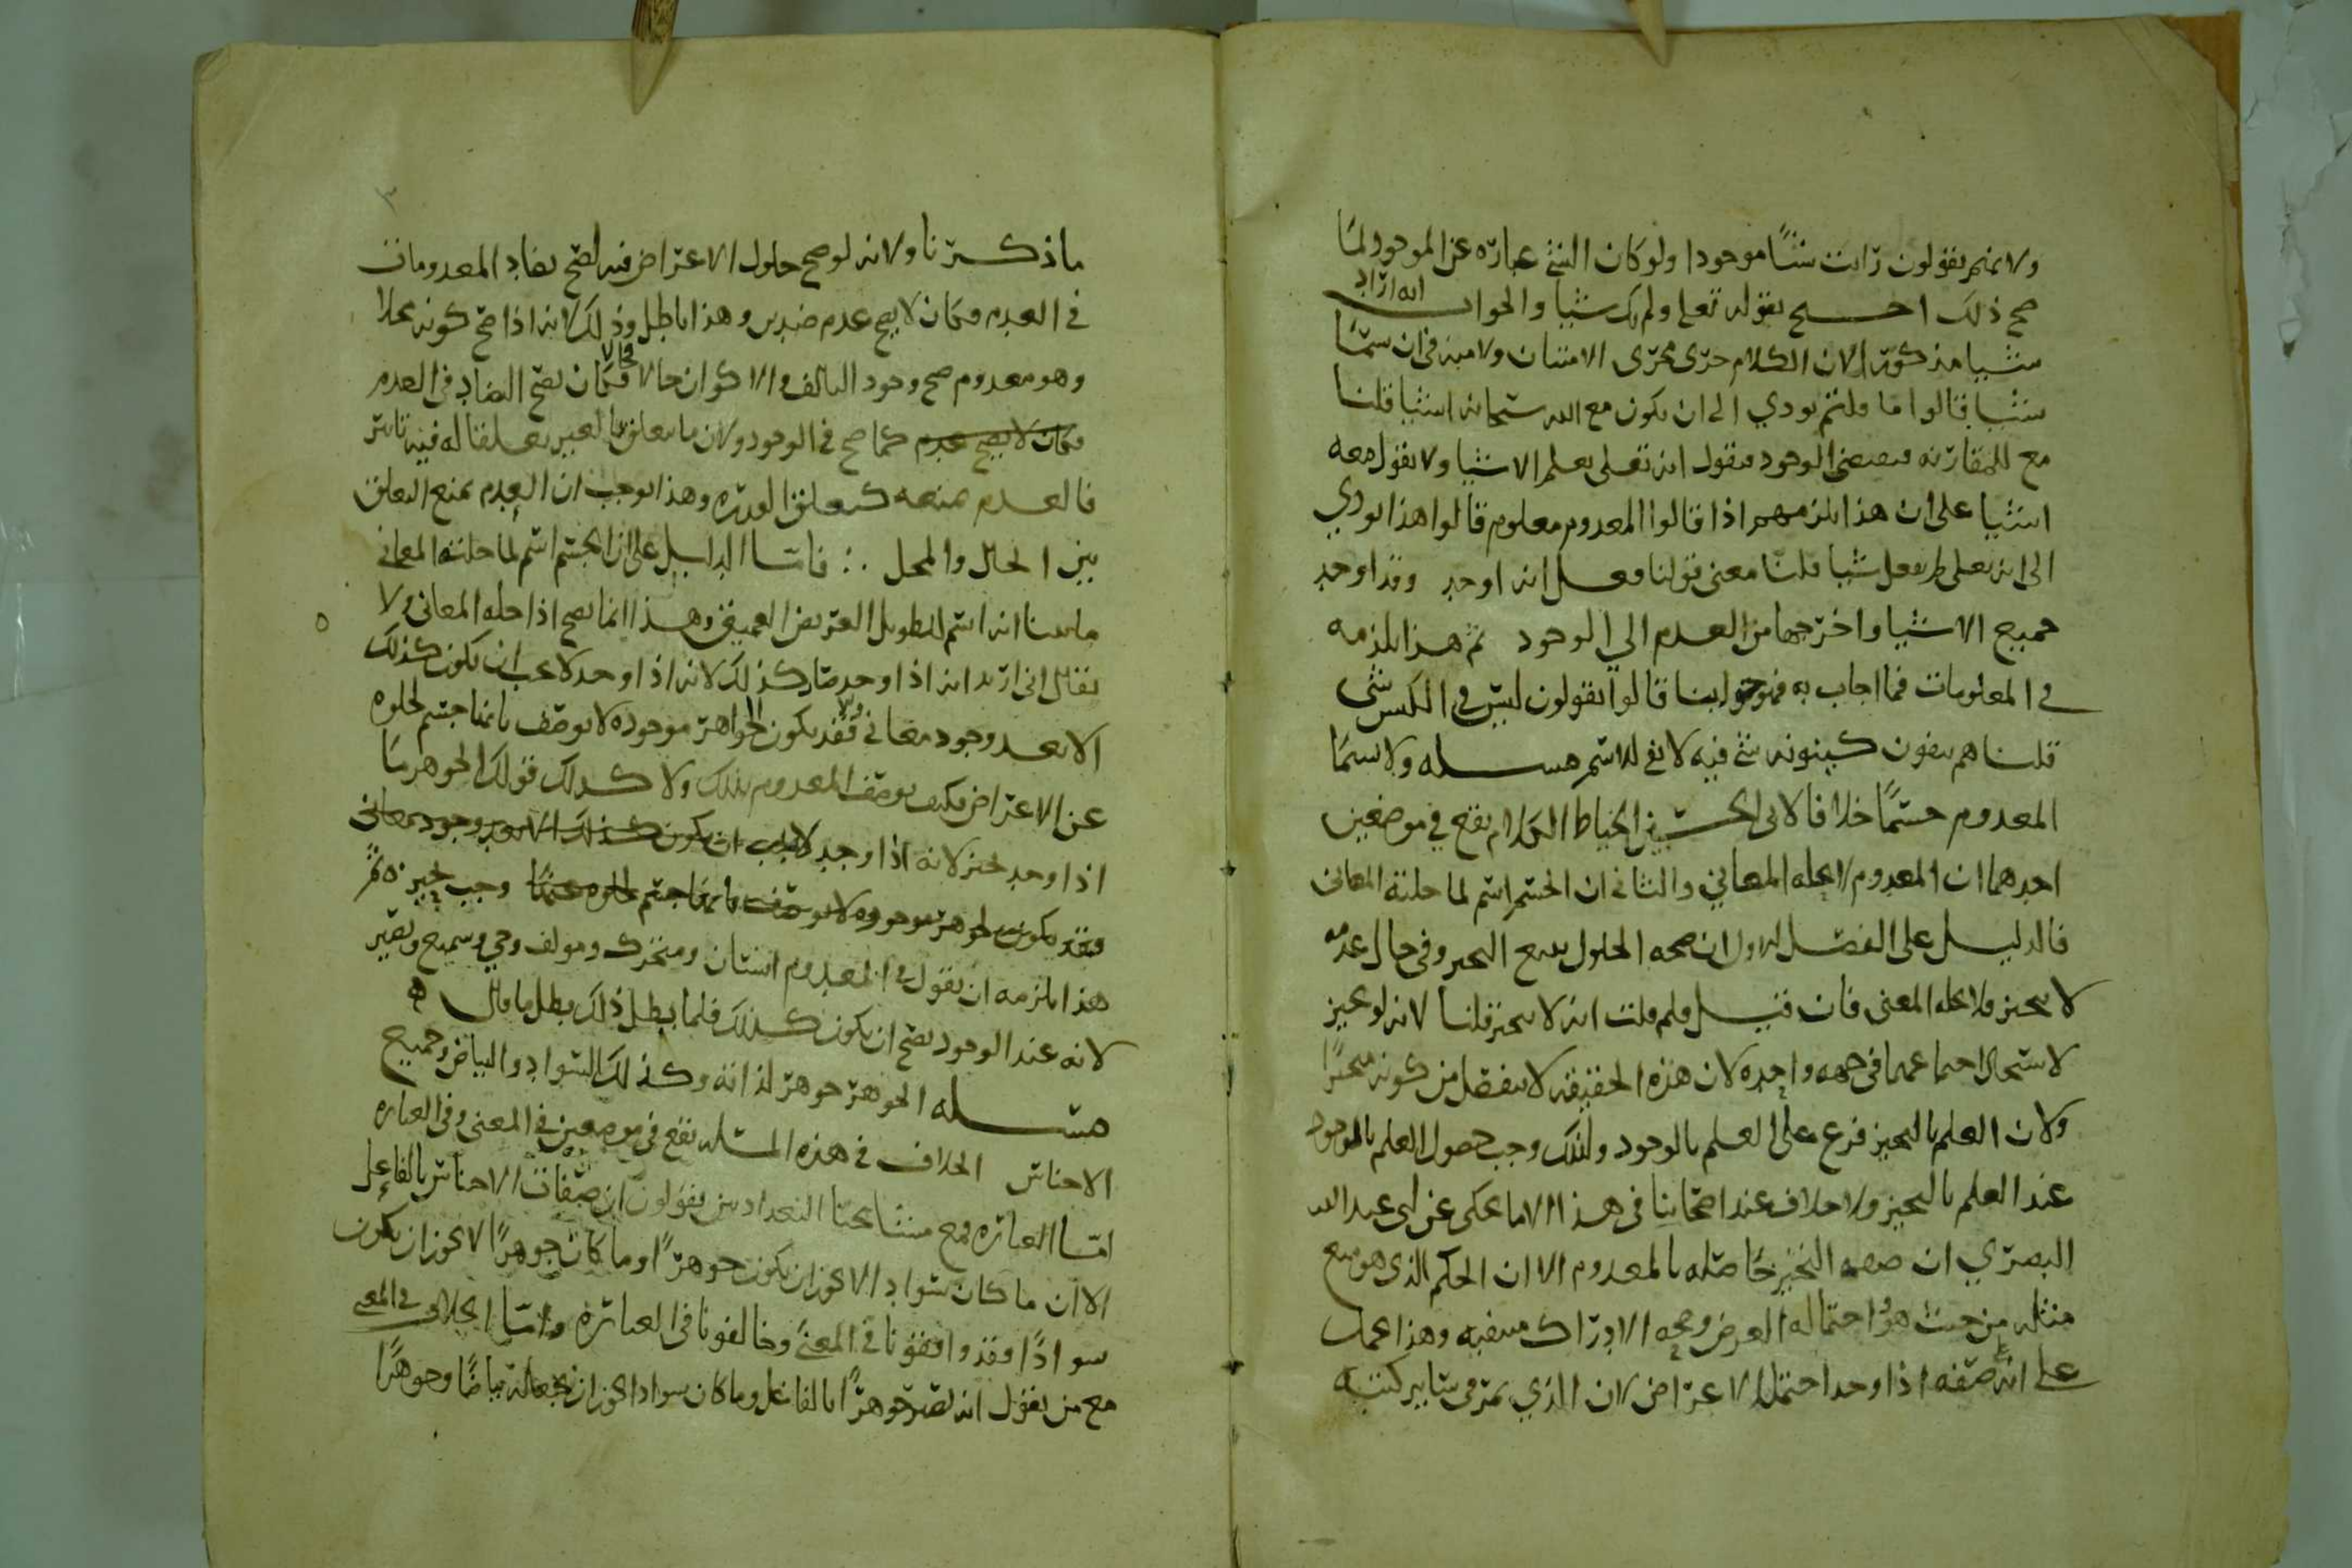 ولانهم يقولون رايت شيئًا موجودا ولو كان الشي عباره عن الموجود لما
صح ذلك احتج بقوله تعلى ولم يك شيئا والجواب انه اراد
شيئا مذكورا لان الكلام جرى مجرى الامتنان ولا مينه في ان سمى
شيئا قالوا ما قلتم يودي الى ان يكون مع الله سبحانه اشيا قلنا
مع للمقارنه فيقتضي الوجود فيقول انه تعلى يعلم الاشيا ولا يقول معه
اشيا على ان هذا يلزمهم اذا قالوا المعدوم معلوم قالوا هذا يودي
الى انه تعلى لم يفعل شيا قلنا معنى قولنا فعل انه اوجد وقد اوجد
جميع الاشيا واخرجها من العدم الى الوجود ثم هذا يلزمه
في المعلومات فما اجاب به فهو جوابنا قالوا يقولون ليس في الكيس شى
قلنا هم ينفون كينونه شي فيه لا نفي للاسم مسله ولا يسمى
المعدوم جسمًا خلافا لابي الحسين الخياط الكلام يقع في موضعين
احدهما ان المعدوم لا يحله المعاني والثاني ان الجسم اسم لما حلته المعانى
فالدليل على الفصل الاول ان صحه الحلول يتبع التحيز وفي حال عدمه
لا يتحيز ولا يحله المعنى فان قيل ولم قلت انه لا يتحيز قلنا لانه لو تحيز
لاستحال اجتماعهما في جهه واحده لان هذه الحقيقه لا ينفصل من كونه متحيزًا
ولان العلم بالتحيز فرع على العلم بالوجود ولذلك وجب حصول العلم بالموجود
عند العلم بالتحيز ولا خلاف عند اصحابنا في هذا الا ما يحكى عن ابي عبد الله
البصري ان صفه التحيز حاصله بالمعدوم الا ان الحكم الذي هو منع
مثله من حيث هو واحتماله العرض وصحه الادراك منفيه وهذا
على انه صفه اذا وجد احتمل الاعراض لان الذي
ما ذكرنا ولانه لو صح حلول الاعراض فيه لصح تضاد المعدومات
في العدم فكان لا يصح عدم ضدين وهذا باطل وذلك لانه اذا صح كونه محلا
وهو معدوم صح وجود التالف والاكوان حالا فكان يصح التضاد في العدم
فكان لا يصح عدم كما صح في الوجود ولان ما يتعلق بالغير تعلقا له فيه تاثير
فالعدم يمنعه كتعلق القدره وهذا يوجب ان العدم يمنع التعلق
بين الحال والمحل فاما الدليل على ان الجسم اسم لما حلته المعاني
ما بينا انه اسم للطويل العريض العميق وهذا انما يصح اذا حله المعانى ولا
يقال اني اريد انه اذا وجد صار كذلك لانه اذا وجد لا يجب ان يكون كذلك
الا بعد وجود معاني فقد يكون الجواهر موجوده لا يوصف بانها جسم لخلوه
عن الاعراض فكيف يوصف المعدوم بذلك ولا كذلك قولك الجوهر
اذا وجد تحيز لانه اذا وجد لا يجب ان يكون كذلك الا بعد وجود معانى
فقد يكون الجوهر موجوده لا يوصف بانها جسم لخلوه عنها وجب تحيزه ثم
هذا يلزمه ان يقول في المعدوم انسان ومتحرك ومولف وحي وسميع وبصير
لانه عند الوجود يصح ان يكون كذلك فلما بطل ذلك بطل ما قال ه
مسله الجوهر جوهر لذاته وكذلك السواد والبياض وجميع
الاجناس الخلاف في هذه المسله يقع في موضعين في المعنى وفي العباره
اما العباره فمع مشايخنا البغداديين يقولون ان صفات الاجناس بالفاعل
الا ان ما كان سواد الا يجوز ان يكون جوهرًا وما كان جوهرًا لا يجوز ان يكون
سوادًا فقد وافقونا في المعنى وخالفونا في العباره واما الخلاف في المعنى
مع من يقول انه يصير جوهرًا بالفاعل وما كان سوادا يجوز ان يجعله بياضًا وجوهرًا